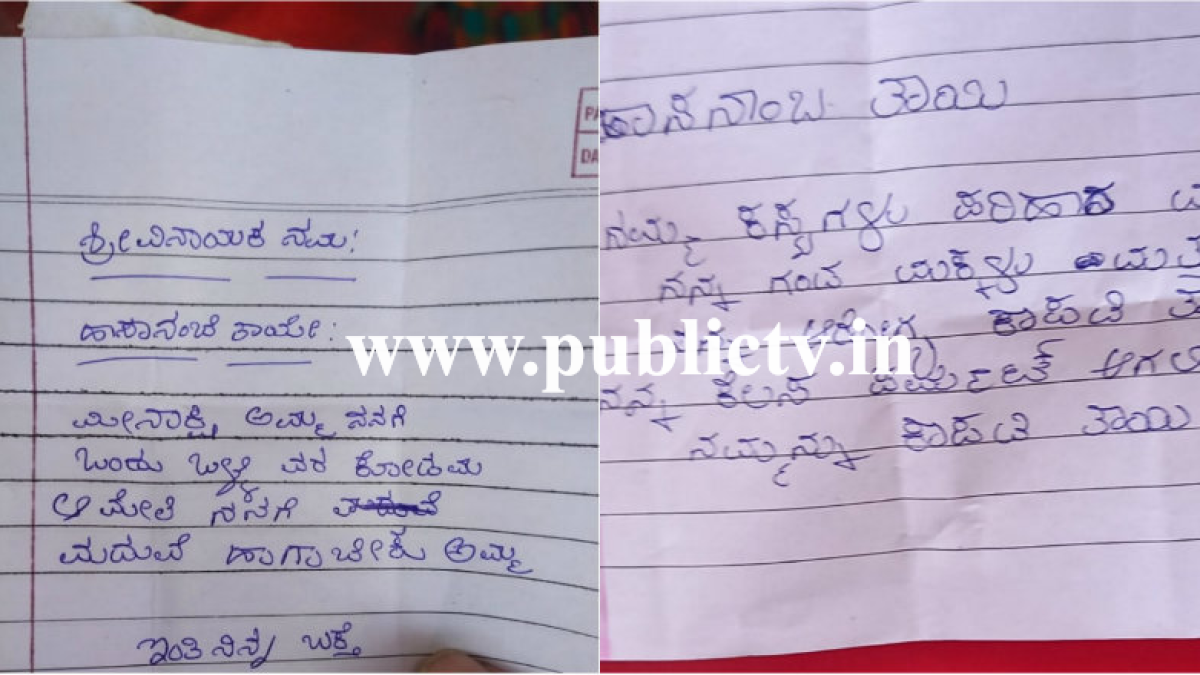 PA
DA
ಶ್ರೀವಿನಾಯಕ ನಮಃ
ಹಾಸಾನಂಬೆ ತಾಯೇ:
ಮೀನಾಕ್ಷಿ ಅಮ್ಮ ನನಗೆ
ಒಂದು ಒಳ್ಳೆ ವರ ಕೋಡಮ
ಆಮೇಲೆ ನನಗೆ
ಮದುವೆ ಹಾಗಾಬೇಕು ಅಮ್ಮ
ಇಂತಿ ನಿನ್ನ ಬಕ್ತೆ
ಹಾಸನಾಂಬ ತಾಯಿ
ನಮ್ಮ ಕಷ್ಟಗಳು ಪರಿಹಾರ
ನನ್ನ ಗಂಡ ಮಕ್ಕಳು
ಆರೋಗ್ಯ ಕಾಪಡಿ
ನನ್ನ ಕೆಲಸ ಪರ್ಮೆಂಟ್ ಆಗಲಿ
ನಮ್ಮನ್ನು ಕಾಪಡಿ ತಾಯಿ
www.publictv.in